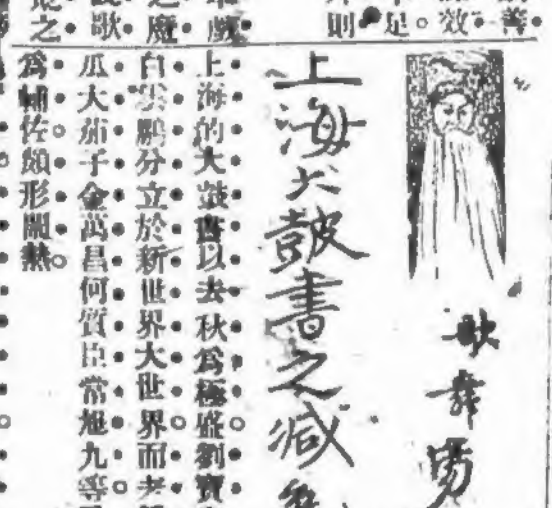 善
效
足
則
戲
之魔
歌
之
歌舞場
上海大鼓書之減
上海的大鼓書以去秋爲極盛。劉寶
白雲鵬分立於新世界大世界。而老
瓜大茄子金萬昌何質臣常旭九等。
爲輔佐頗形鬧熱。